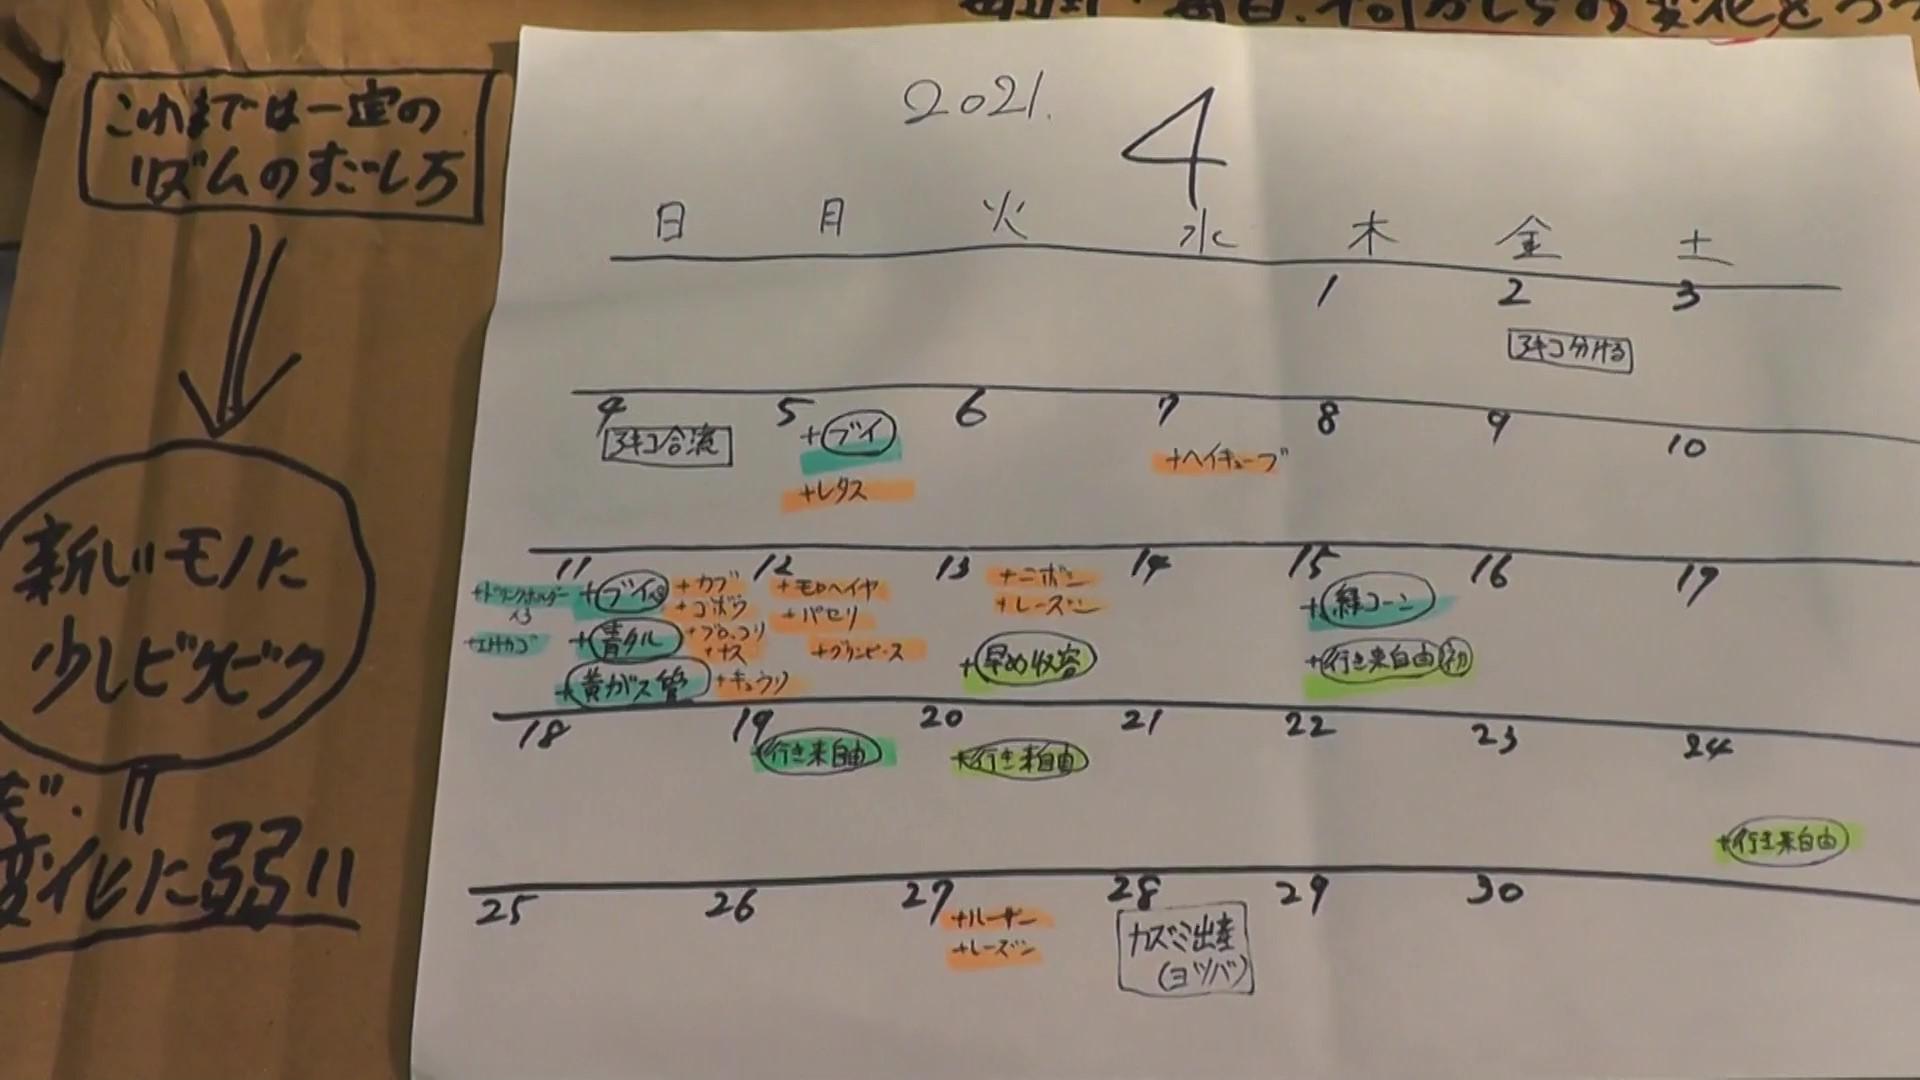 これまでは一定の
リズムのすごし方
新しいモノに
少しビクビク
変化に弱い
2021. 4
日 月 火 水 木 金 土
1 2 3
アキコ分ける
4 5 6 7 8 9 10
アキコ合流
+ブイ
+レタス
+ヘイキューブ
11 12 13 14 15 16 17
+エサカゴ
+ブイ
+青タル
+黄ガス管
+カブ
+ゴボウ
+ブロッコリ
+ナス
+キュウリ
+モロヘイヤ
+パセリ
+グリンピース
+ニボシ
+レーズン
+早め収容
+緑コーン
+行き来自由初
18 19 20 21 22 23 24
+行き来自由
+行き来自由
+行き来自由
25 26 27 28 29 30
+ルーサン
+レーズン
カズミ出産
(ヨツバ)